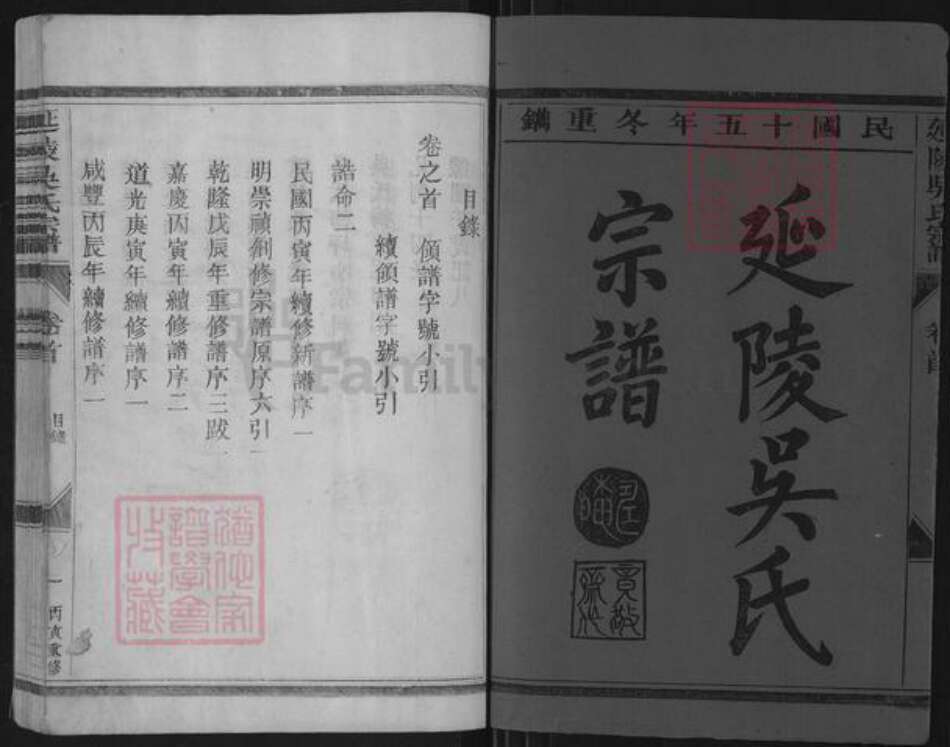 民國十五年冬重鐫
延陵吳氏
宗譜
目錄
卷之首 頒譜字號小引
續頒譜字號小引
誥命二
民國丙寅年續修新譜序一
明崇禎創修宗譜原序六引一
乾隆戊辰年重修譜序三跋一
嘉慶丙寅年續修譜序二
道光庚寅年續修譜序一
咸豐丙辰年續修譜序一
延陵吳氏宗譜 卷首 目錄 一 丙寅重修